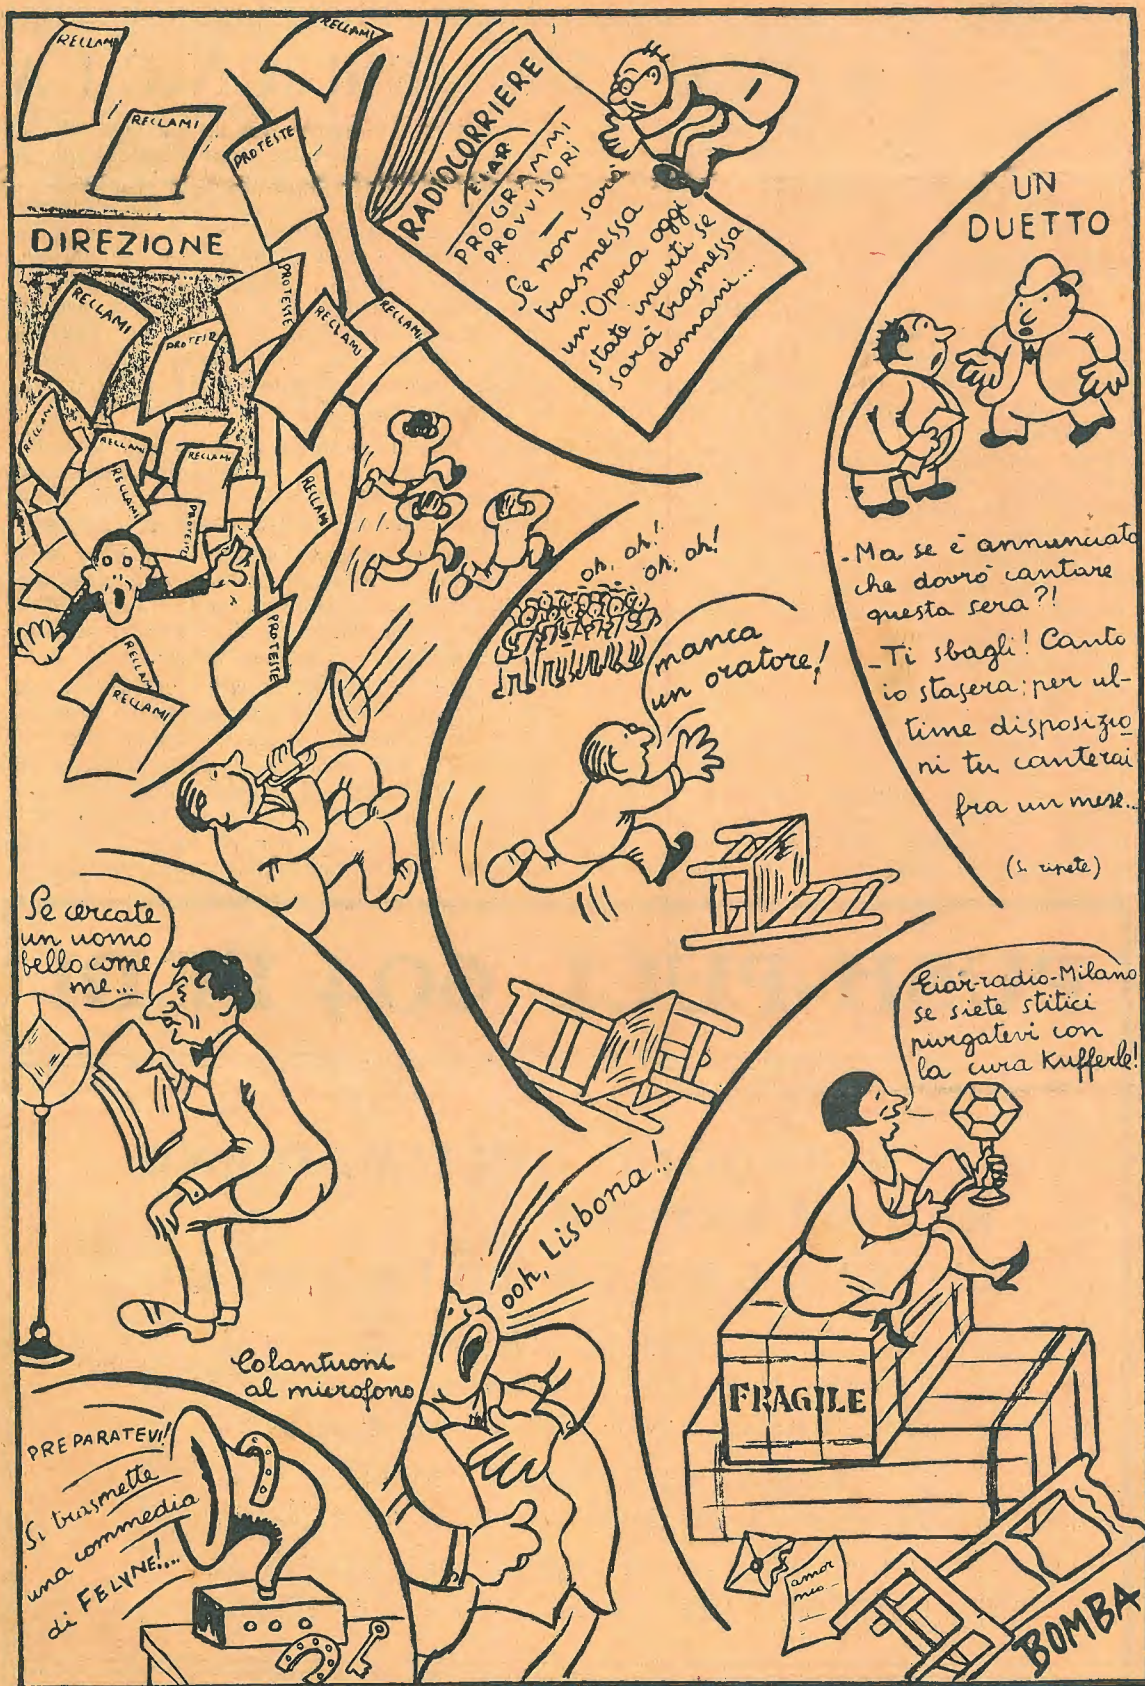 RECLAMI
RECLAMI
RECLAMI
PROTESTE
DIREZIONE
RECLAMI
PROTESTE
PROTESTE
RECLAMI
RECLAMI
RECLAMI
RECLAMI
RECLAMI
RECLAMI
RECLAMI
PROTESTE
PROTESTE
RECLAMI
RECLAMI
RADIOCORRIERE
EIAR
PROGRAMMI
PROVVISORI
Se non sarà
trasmessa
un'Opera oggi
state incerti se
sarà trasmessa
domani...
UN
DUETTO
- Ma se è annunciato
che dovrò cantare
questa sera?!
- Ti sbagli! Canto
io stasera; per ul-
time disposizio
ni tu canterai
fra un mese...
(Si ripete)
oh, oh!
oh, oh!
manca
un oratore!
Se cercate
un uomo
bello come
me...
Colantuoni
al microfono
Eiar-radio-Milano
se siete stitici
purgatevi con
la cura Kufferle!
FRAGILE
amor
mio...
ooh, Lisbona!...
PREPARATEVI!
Si trasmette
una commedia
di FELYNE!....
BOMBA